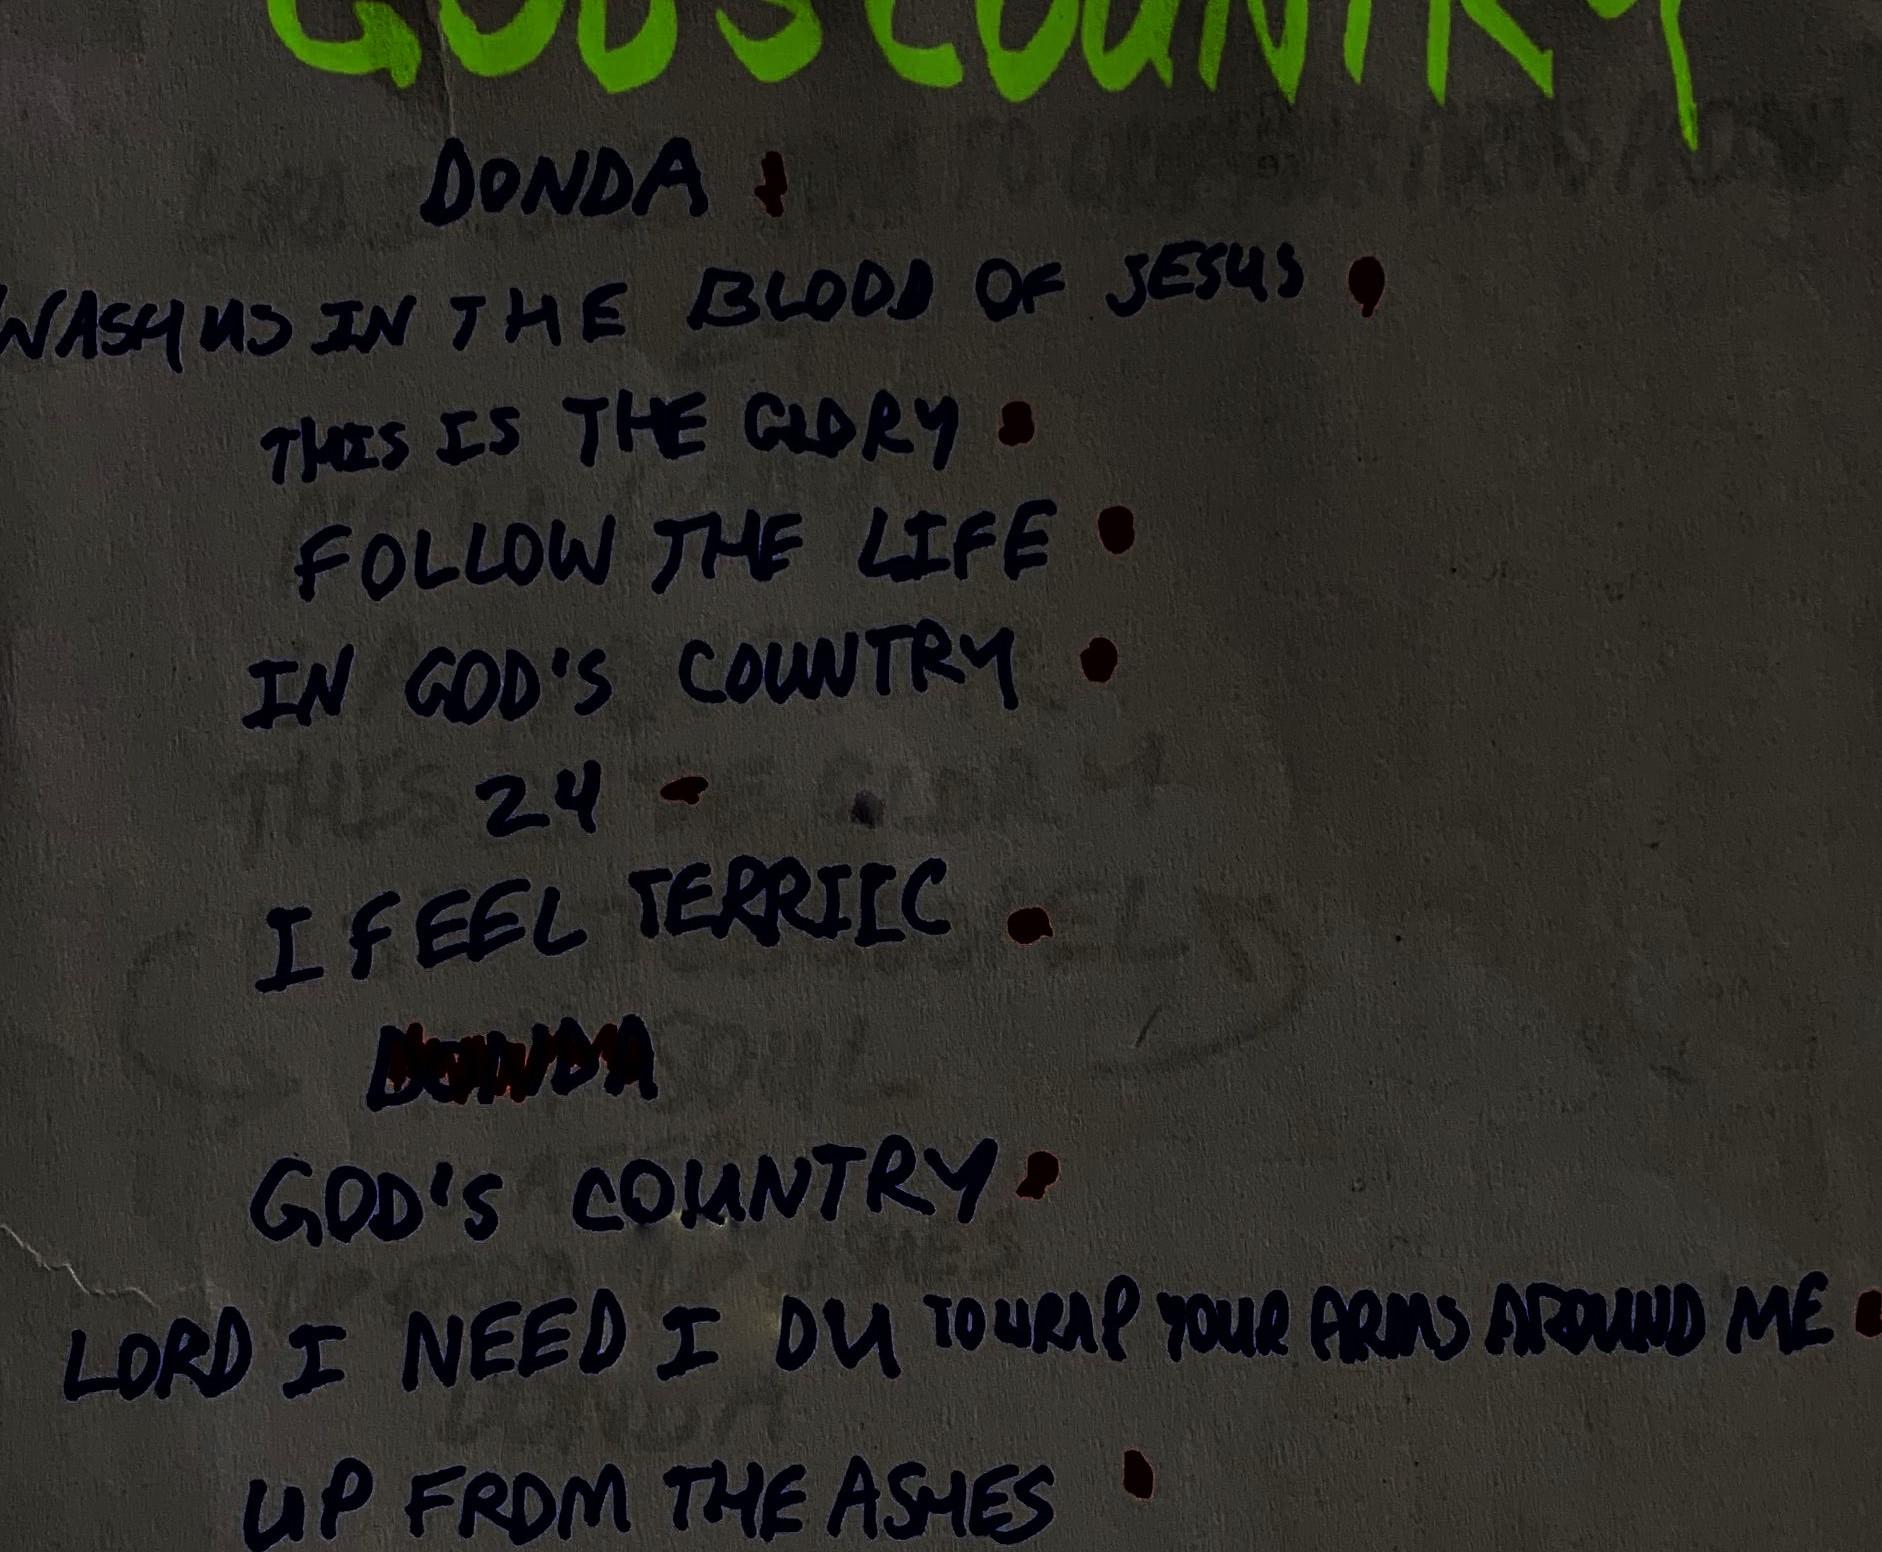 GOD'S COUNTRY
DONDA
WASH US IN THE BLOOD OF JESUS
THIS IS THE GLORY
FOLLOW THE LIFE
IN GOD'S COUNTRY
24
I FEEL TERRIIC
DONDA
GOD'S COUNTRY
LORD I NEED I OU TO WRAP YOUR ARMS AROUND ME
UP FROM THE ASHES